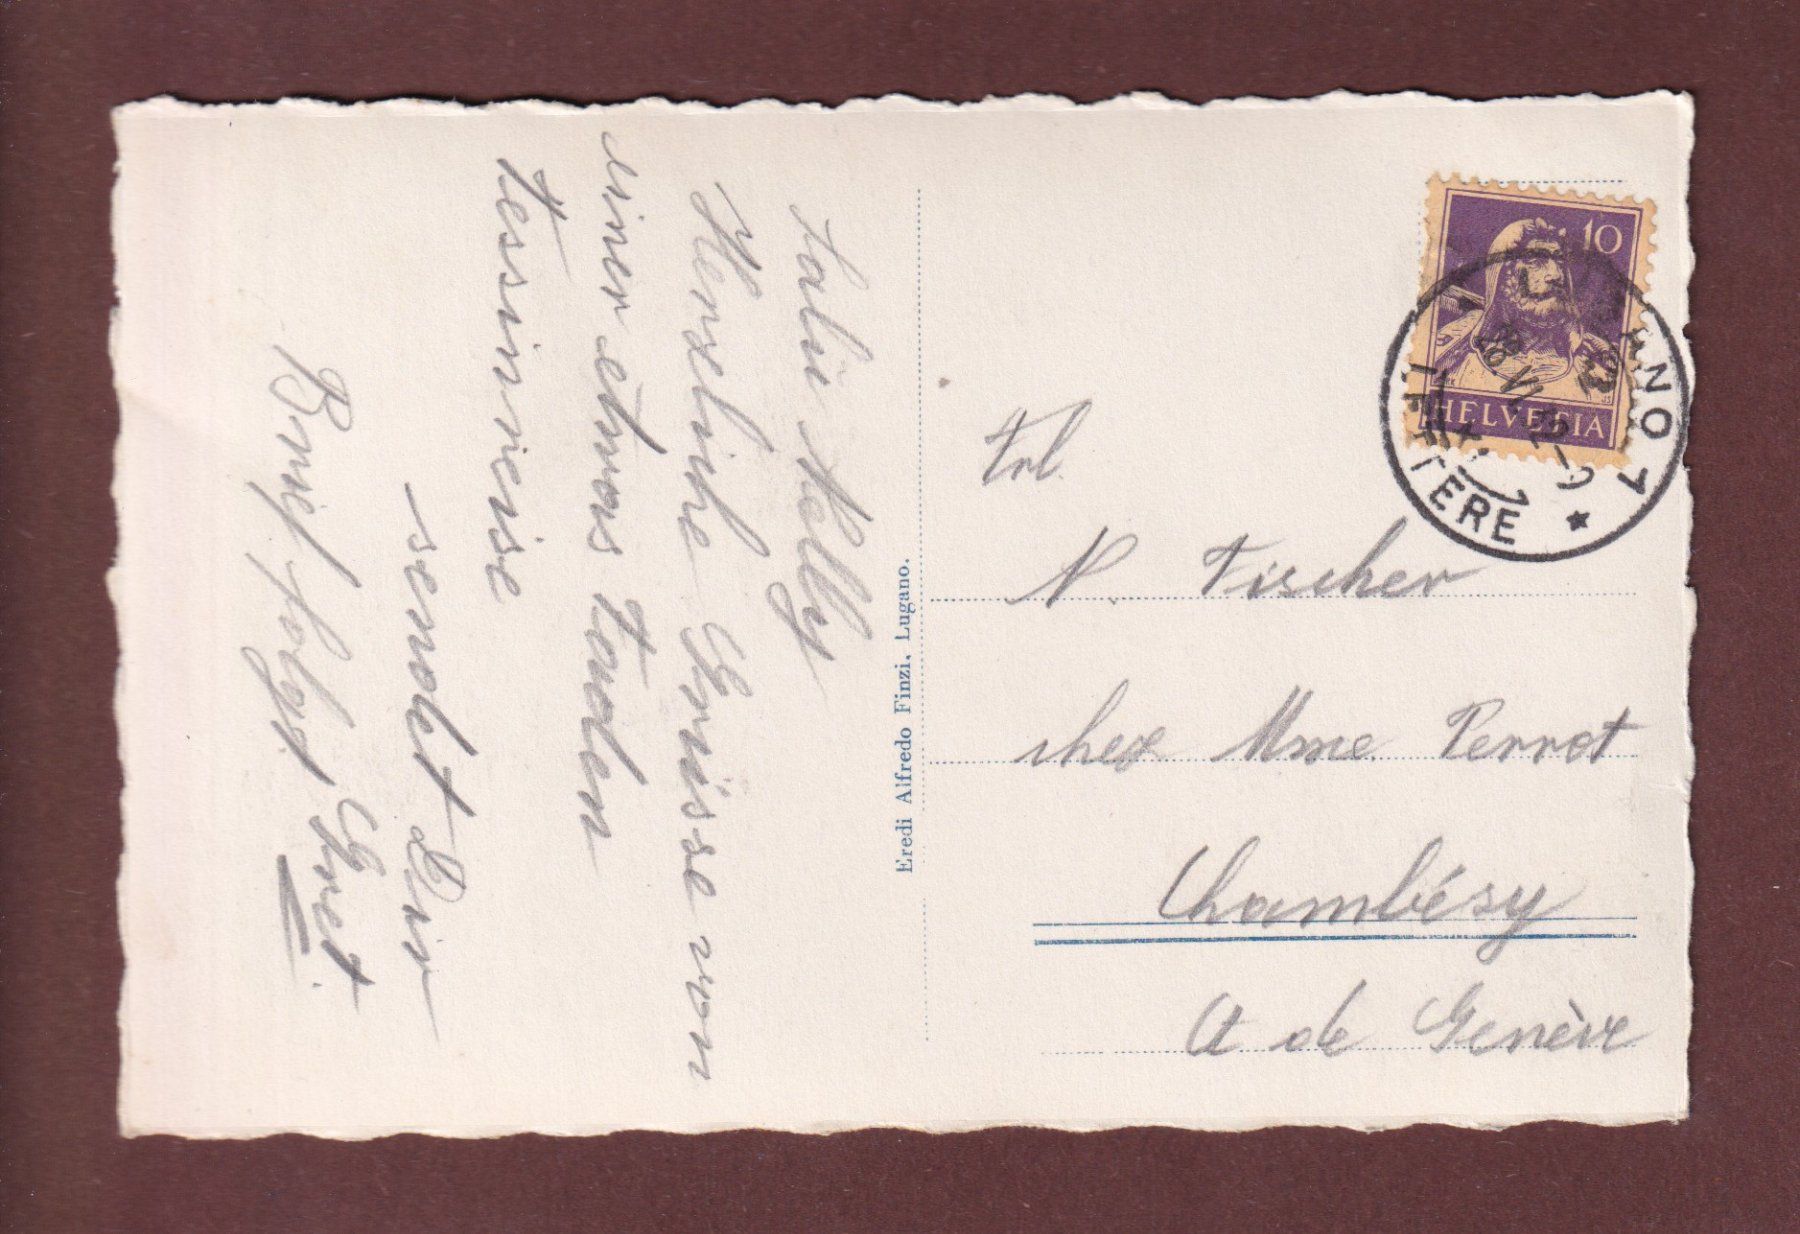 Salü Nelly
Herzliche Grüsse von
einer etwas faulen
Tessinreise
sendet Dir
Brief folgt! Gret.
Eredi Alfredo Finzi, Lugano.
10
HELVESIA
LUGANO 1
LETTERE
Frl.
N. Fischer
chez Mme Perrot
Chambésy
Ct de Genève